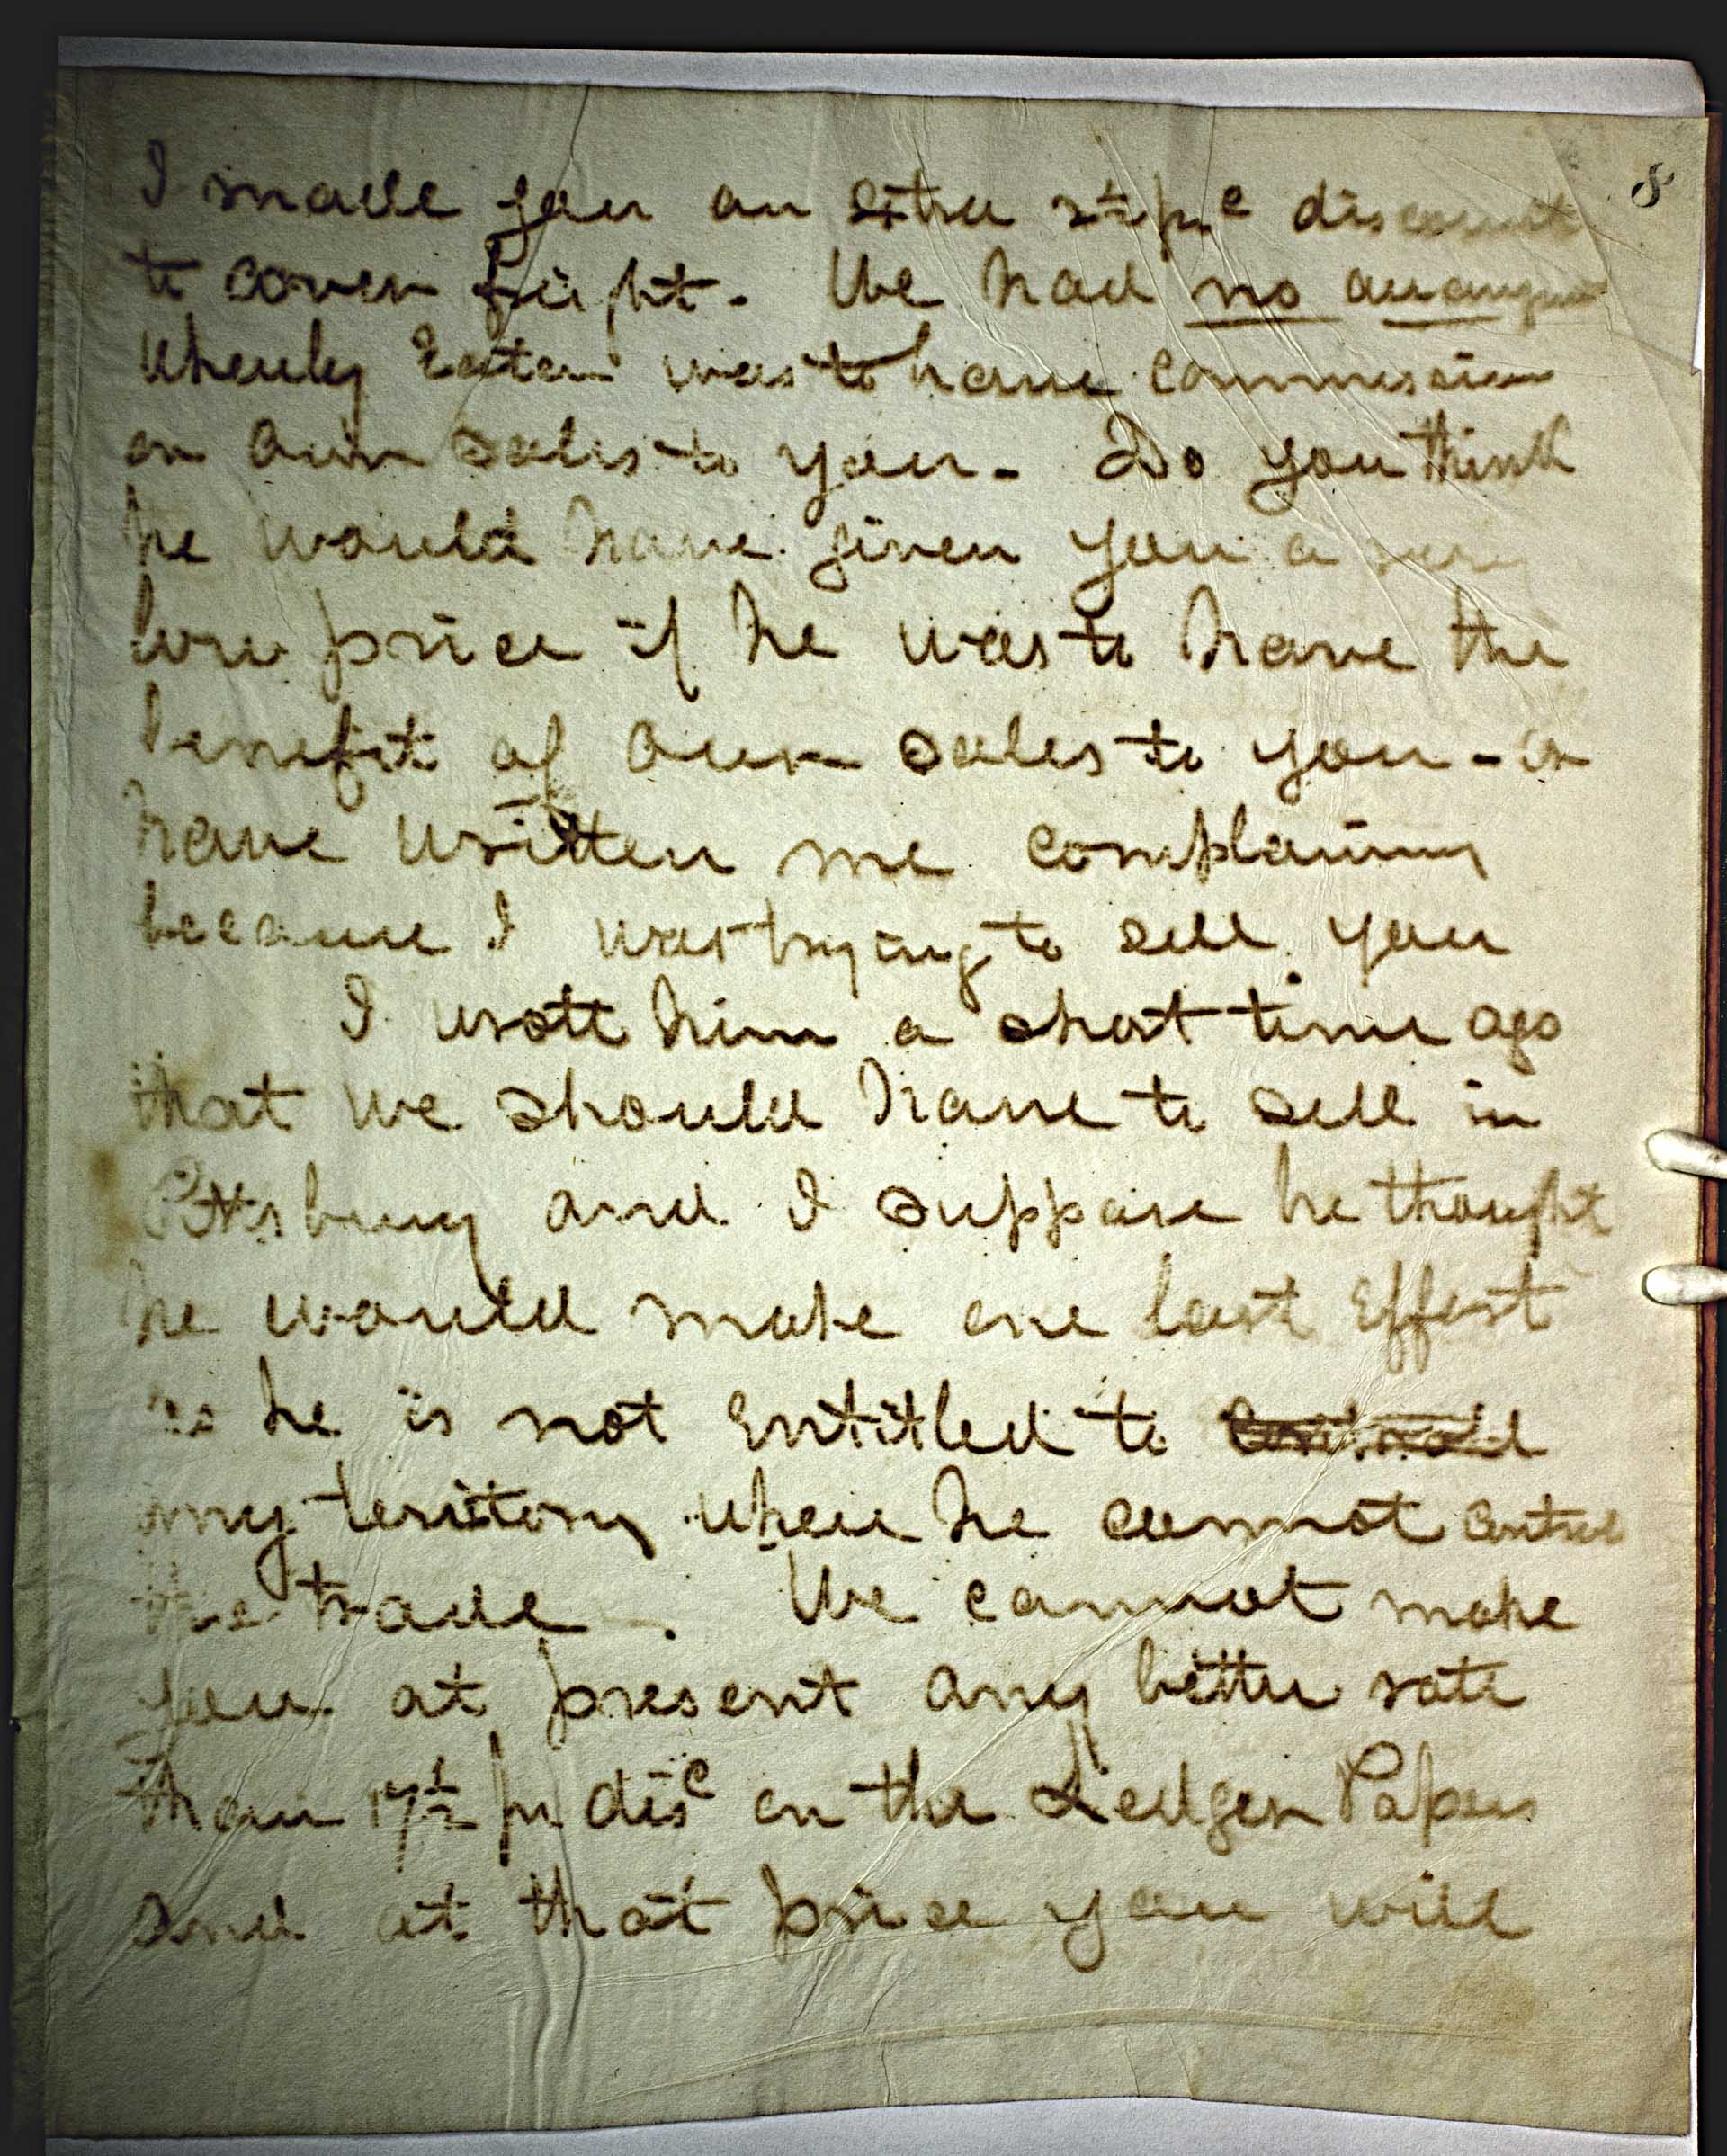 8
I made you an extra 2½ pr c discount
to cover freight. We had no arrangmt
whereby Eaton was to have commission
on our sales to you. Do you think
he would have given you a very
low price if he was to have the
benefit of our sales to you - or
have written me complaining
because I was trying to sell you
I wrote him a short time ago
that we should have to sell in
Pittsburg and I suppose he thought
he would make one last effort
as he is not entitled to
any territory where he cannot control
the trade. We cannot make
you at present any better rate
than 17½ pr disc on the Ledger Papers
and at that price you will